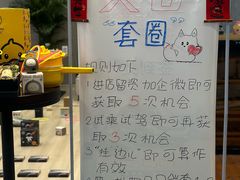 套圈
规则如下
1 进店留资加企微即可
获取 5 次机会
2 试乘试驾即可再获
取 3 次机会
3 "挂边儿"即可算作
有效